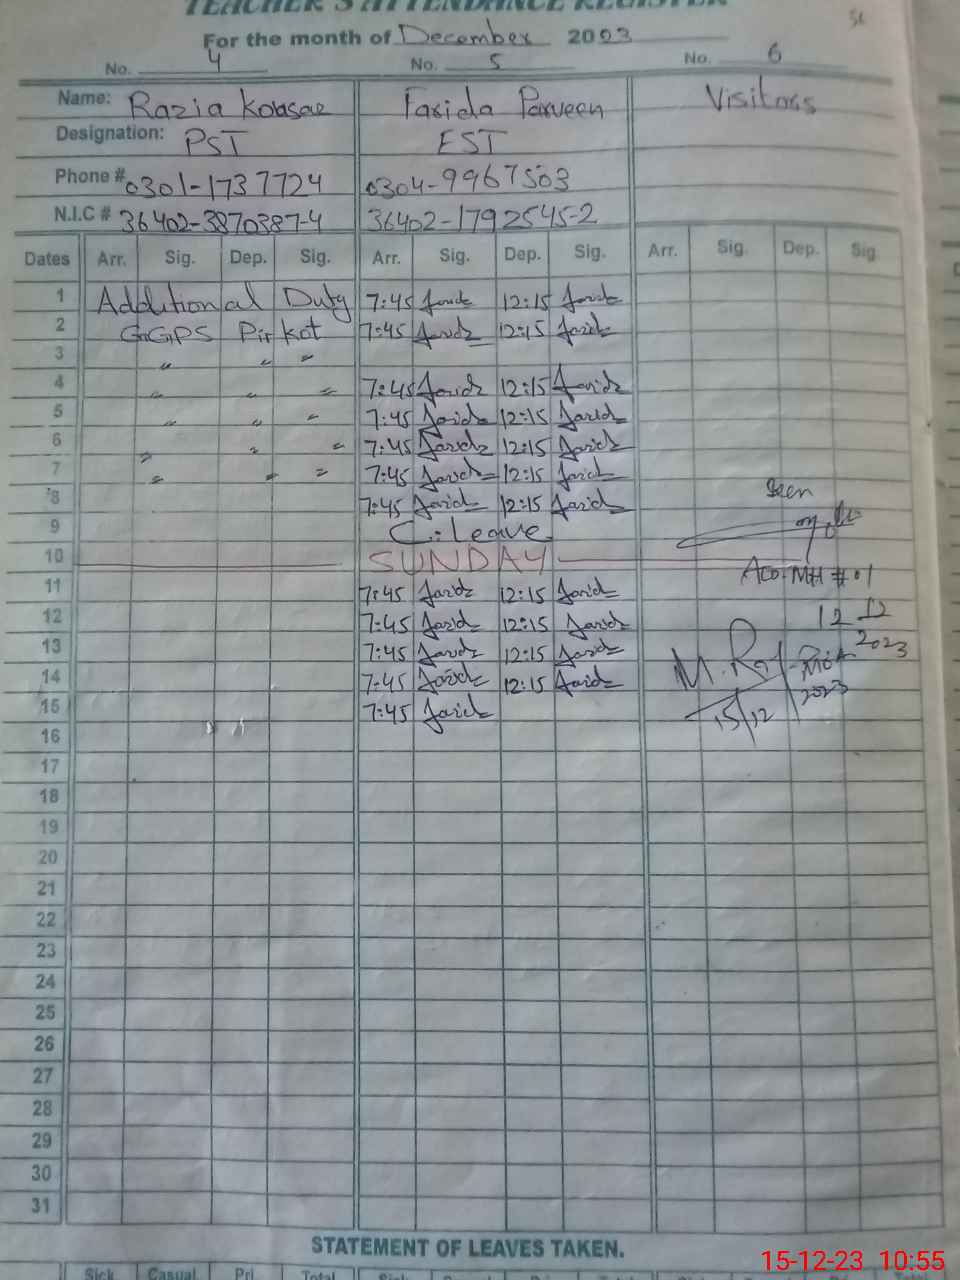 TEACHER'S ATTENDANCE REGISTER
For the month of December 2003
No. 4 No. 5 No. 6
Name: Razia Kousar Farida Parveen Visitors
Designation: PST EST
Phone # 0301-1737724 0304-9967503
N.I.C # 36402-3870387-4 36402-1792545-2
Dates Arr. Sig. Dep. Sig. Arr. Sig. Dep. Sig. Arr. Sig. Dep. Sig.
1 Additional Duty 7:45 Farida 12:15 Farida
2 GGPS Pir Kot 7:45 Farida 12:15 Farida
3 〃 〃 〃
4 〃 〃 〃 7:45 Farida 12:15 Farida
5 〃 〃 〃 7:45 Farida 12:15 Farida
6 〃 〃 〃 7:45 Farida 12:15 Farida
7 〃 〃 〃 7:45 Farida 12:15 Farida
8 7:45 Farida 12:15 Farida Seen
9 C. Leave
10 SUNDAY
11 7:45 Farida 12:15 Farida
12 7:45 Farida 12:15 Farida 12 12
13 7:45 Farida 12:15 Farida 2023
14 7:45 Farida 12:15 Farida 2023
15 7:45 Farida 15/12
16
17
18
19
20
21
22
23
24
25
26
27
28
29
30
31
STATEMENT OF LEAVES TAKEN.
Sick Casual Pri Total
15-12-23 10:55